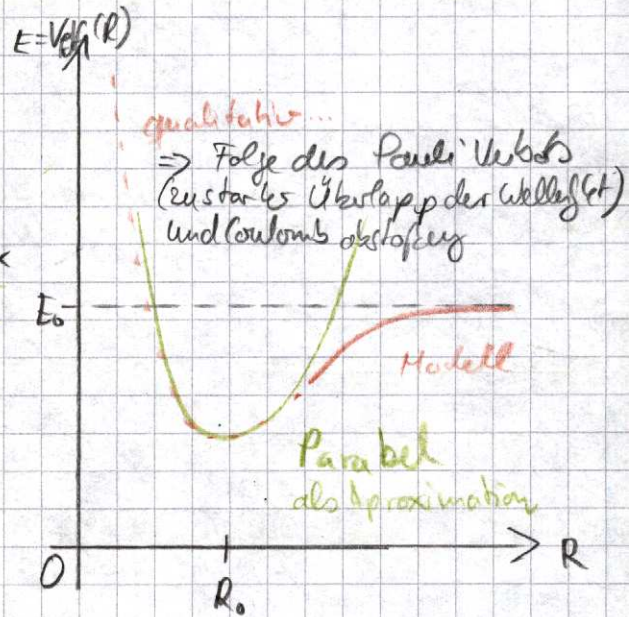 E=V_eff(R)
qualitativ...
⇒ Folge des Pauli Verbots
(zu starker Überlapp der Wellenfkt)
und Coulomb abstoßung
E₀
Modell
Parabel
als Aproximation
0
R₀
R